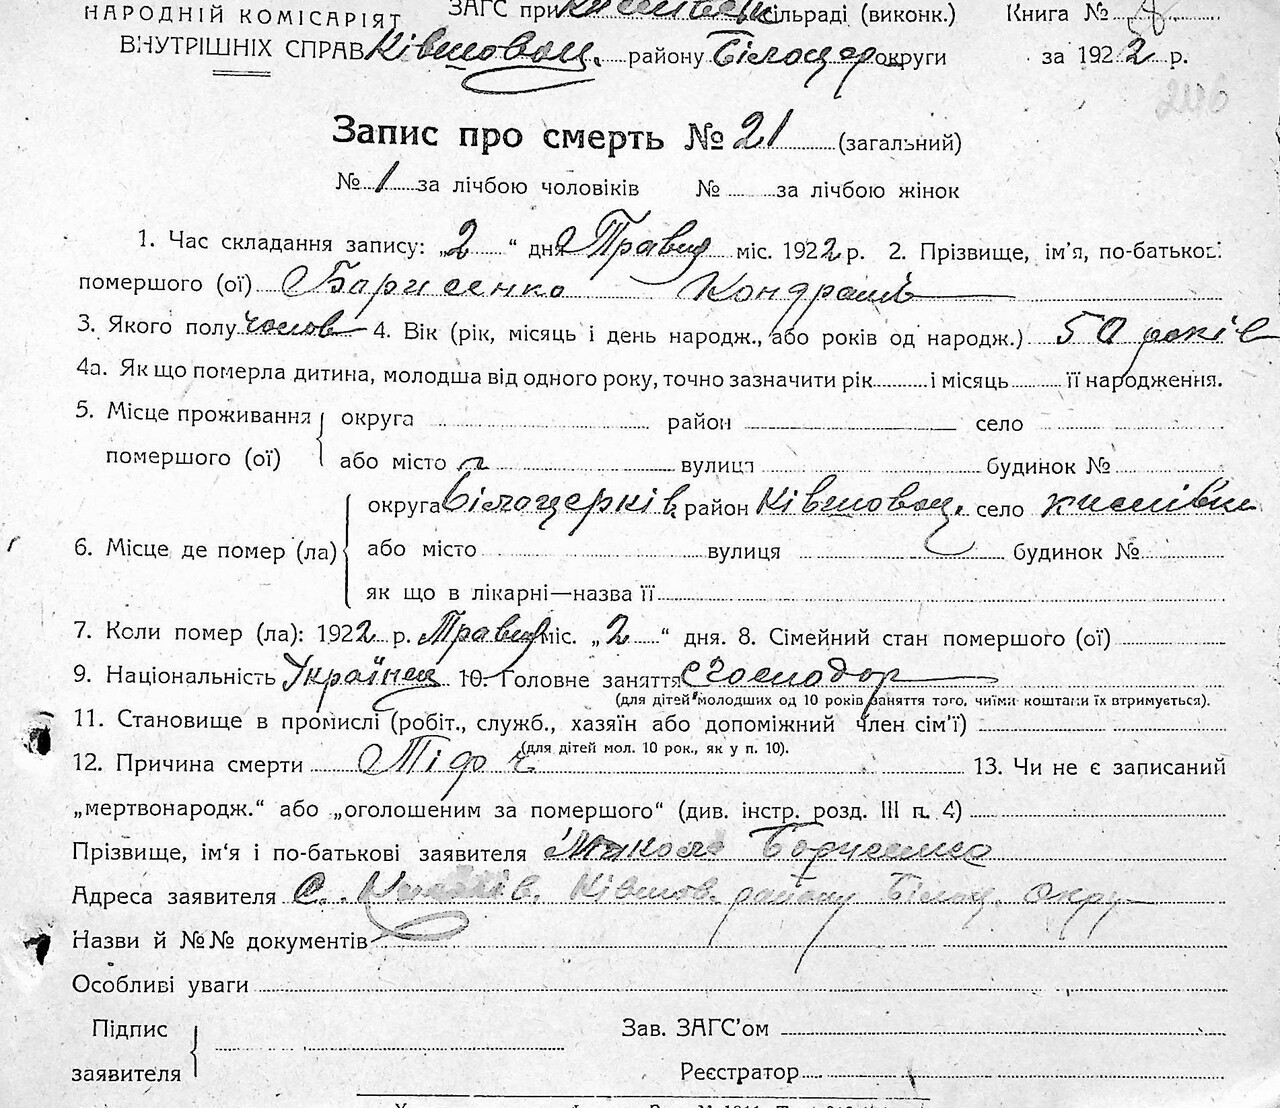 НАРОДНІЙ КОМІСАРІЯТ ЗАГС при сільраді (виконк.) Книга № 8
ВНУТРІШНІХ СПРАВ Ківшовац. району Білоцер округи за 1922 р.
206
Запис про смерть № 21 (загальний)
№ 1 за лічбою чоловіків № за лічбою жінок
1. Час складання запису: „2“ дня Травня міс. 1922 р. 2. Прізвище, ім'я, по-батькові
помершого (ої) Барисенко Кондрат
3. Якого полу чолов 4. Вік (рік, місяць і день народж., або років од народж.) 50 років
4а. Як що померла дитина, молодша від одного року, точно зазначити рік і місяць її народження.
5. Місце проживання округа район село
помершого (ої) або місто вулиця будинок №
округа Білоцерків. район Ківшовац. село
6. Місце де помер (ла) або місто вулиця будинок №
як що в лікарні—назва її
7. Коли помер (ла): 1922 р. Травня міс. „2“ дня. 8. Сімейний стан помершого (ої)
9. Національність Українец 10. Головне заняття Господор
(для дітей молодших од 10 років заняття того, чиїми коштами їх втримується).
11. Становище в промислі (робіт., служб., хазяїн або допоміжний член сім'ї)
(для дітей мол. 10 рок., як у п. 10).
12. Причина смерти 13. Чи не є записаний
„мертвонародж.“ або „оголошеним за помершого“ (див. інстр. розд. III п. 4)
Прізвище, ім'я і по-батькові заявителя Микола Борисенко
Адреса заявителя С. Ківшов. району Білоц. окру
Назви й №№ документів
Особливі уваги
Підпис Зав. ЗАГС'ом
заявителя Реєстратор